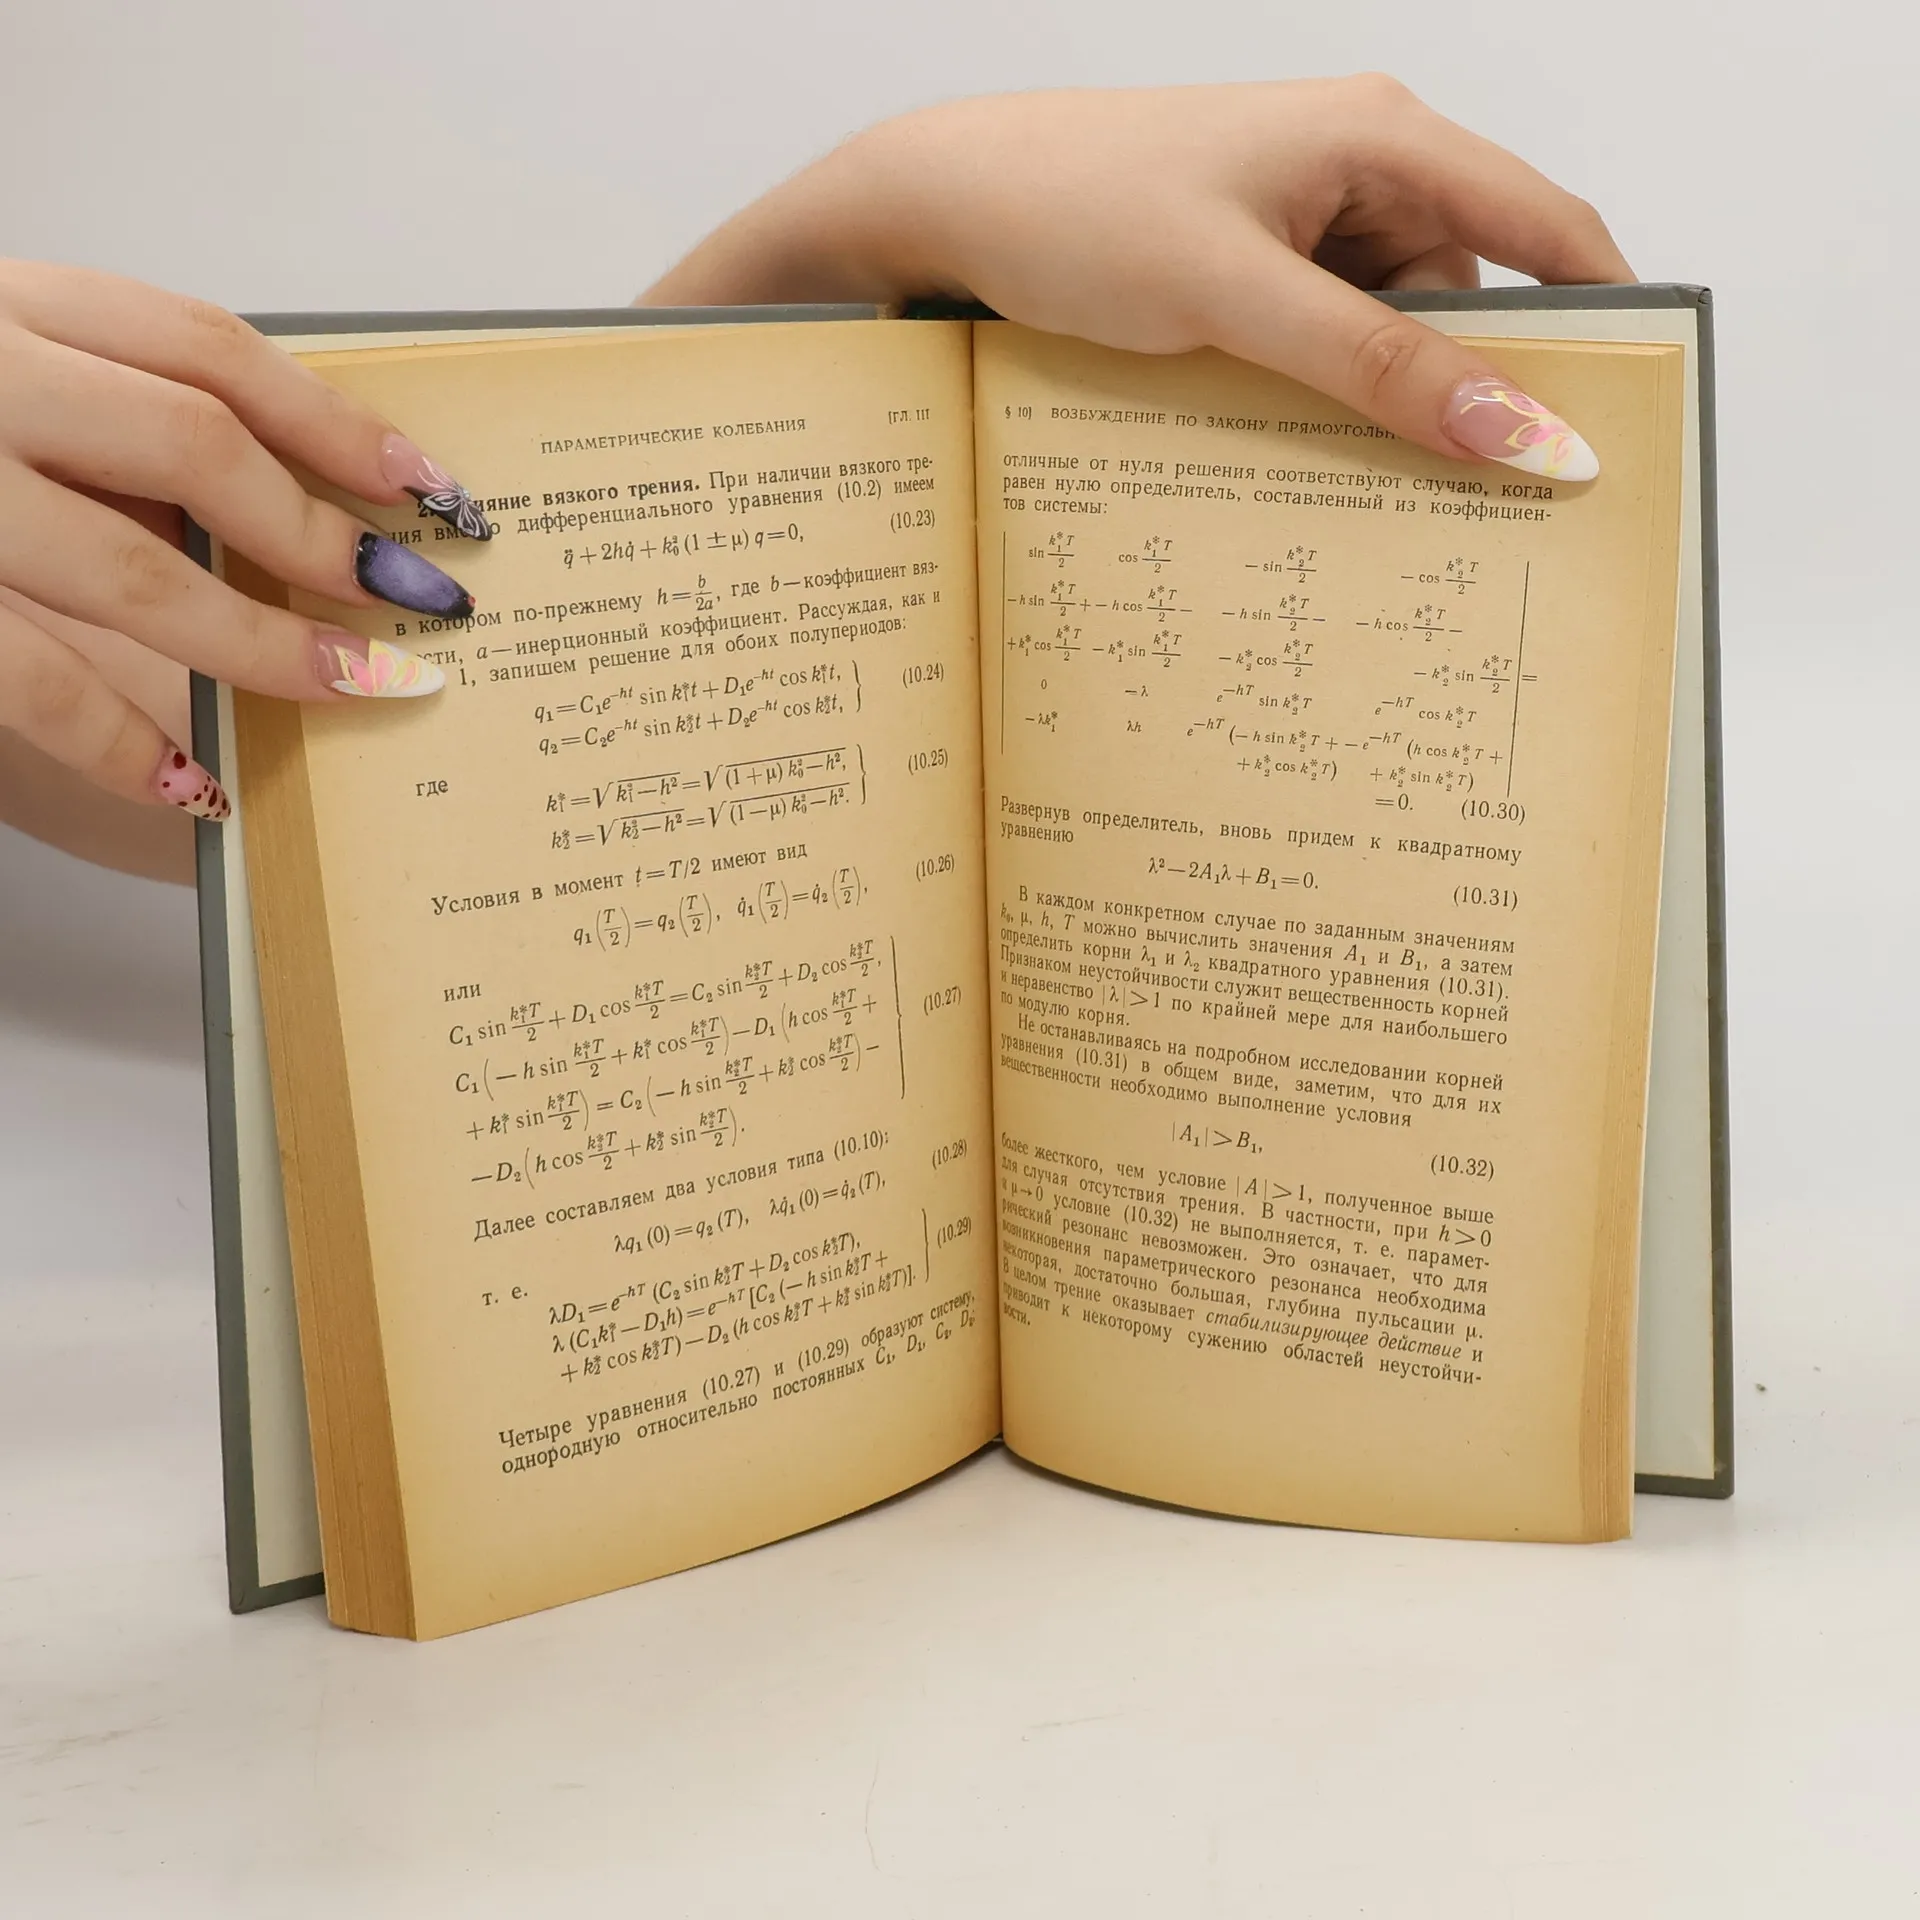 ПАРАМЕТРИЧЕСКИЕ КОЛЕБАНИЯ [ГЛ. III
вязкого трения. При наличии вязкого тре-
дифференциального уравнения (10.2) имеем
q̈ + 2hq̇ + k₀² (1 ± μ) q = 0, (10.23)
в котором по-прежнему h = b/2a, где b — коэффициент вяз-
a — инерционный коэффициент. Рассуждая, как и
1, запишем решение для обоих полупериодов:
q₁ = C₁e^{−ht} sin k₁*t + D₁e^{−ht} cos k₁*t, }
q₂ = C₂e^{−ht} sin k₂*t + D₂e^{−ht} cos k₂*t, } (10.24)
где
k₁* = √(k₁² − h²) = √((1 + μ) k₀² − h²), }
k₂* = √(k₂² − h²) = √((1 − μ) k₀² − h²). } (10.25)
Условия в момент t = T/2 имеют вид
q₁(T/2) = q₂(T/2), q̇₁(T/2) = q̇₂(T/2), (10.26)
или
C₁ sin k₁*T/2 + D₁ cos k₁*T/2 = C₂ sin k₂*T/2 + D₂ cos k₂*T/2,
C₁(− h sin k₁*T/2 + k₁* cos k₁*T/2) − D₁(h cos k₁*T/2 + (10.27)
+ k₁* sin k₁*T/2) = C₂(− h sin k₂*T/2 + k₂* cos k₂*T/2) −
− D₂(h cos k₂*T/2 + k₂* sin k₂*T/2).
Далее составляем два условия типа (10.10):
λq₁(0) = q₂(T), λq̇₁(0) = q̇₂(T), (10.28)
т. е.
λD₁ = e^{−hT} (C₂ sin k₂*T + D₂ cos k₂*T),
λ (C₁k₁* − D₁h) = e^{−hT} [C₂ (− h sin k₂*T + (10.29)
+ k₂* cos k₂*T) − D₂ (h cos k₂*T + k₂* sin k₂*T)].
Четыре уравнения (10.27) и (10.29) образуют систему,
однородную относительно постоянных C₁, D₁, C₂, D₂;
§ 10] ВОЗБУЖДЕНИЕ ПО ЗАКОНУ
отличные от нуля решения соответствуют случаю, когда
равен нулю определитель, составленный из коэффициен-
тов системы:
| sin k₁*T/2 cos k₁*T/2 − sin k₂*T/2 − cos k₂*T/2 |
− h sin k₁*T/2 + − h cos k₁*T/2 − − h sin k₂*T/2 − − h cos k₂*T/2 −
+ k₁* cos k₁*T/2 − k₁* sin k₁*T/2 − k₂* cos k₂*T/2 − k₂* sin k₂*T/2 =
0 − λ e^{−hT} sin k₂*T e^{−hT} cos k₂*T
− λk₁* λh e^{−hT} (− h sin k₂*T + − e^{−hT} (h cos k₂*T +
+ k₂* cos k₂*T) + k₂* sin k₂*T)
= 0. (10.30)
Развернув определитель, вновь придем к квадратному
уравнению
λ² − 2A₁λ + B₁ = 0. (10.31)
В каждом конкретном случае по заданным значениям
k₀, μ, h, T можно вычислить значения A₁ и B₁, а затем
определить корни λ₁ и λ₂ квадратного уравнения (10.31).
Признаком неустойчивости служит вещественность корней
и неравенство |λ| > 1 по крайней мере для наибольшего
по модулю корня.
Не останавливаясь на подробном исследовании корней
уравнения (10.31) в общем виде, заметим, что для их
вещественности необходимо выполнение условия
|A₁| > B₁, (10.32)
более жесткого, чем условие |A| > 1, полученное выше
для случая отсутствия трения. В частности, при h > 0
и μ → 0 условие (10.32) не выполняется, т. е. парамет-
рический резонанс невозможен. Это означает, что для
возникновения параметрического резонанса необходима
некоторая, достаточно большая, глубина пульсации μ.
В целом трение оказывает стабилизирующее действие и
приводит к некоторому сужению областей неустойчи-
вости.